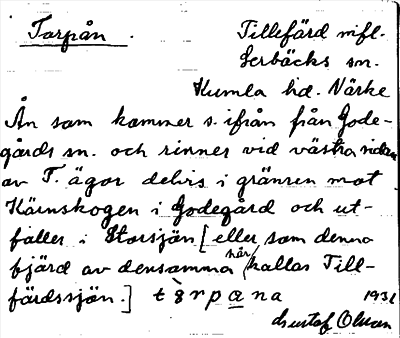 Torpån.
Tillefärd mfl.
Lerbäcks sn.
Kumla hd. Närke
Ån som kommer s. ifrån från Gode-
gårds sn. och rinner vid västra sidan
av T. ägor delvis i gränsen mot
Kärnskogen i Godegård och ut-
faller i Storsjön [eller som denna
fjärd av densamma här kallas Till-
färdssjön.] tɵ̀rpana 1931
Gustaf Olsson